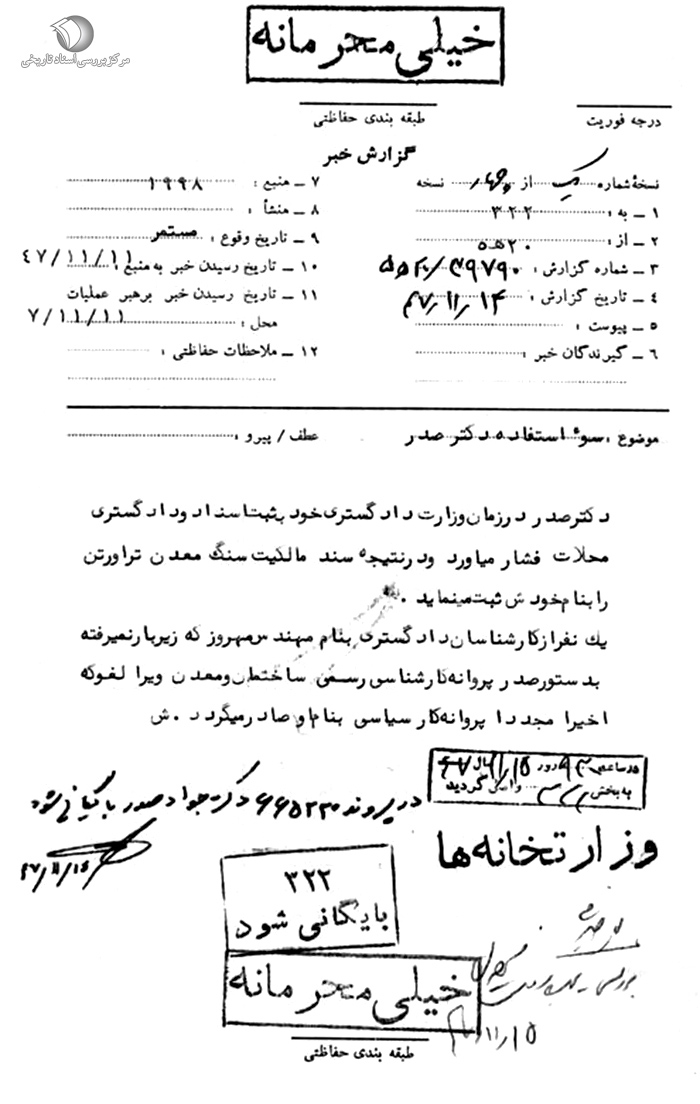 مرکز بررسی اسناد تاریخی
خیلی محرمانه
طبقه بندی حفاظتی
درجه فوریت
گزارش خبر
نسخهٔ شماره یک از چهار نسخه
۱ – به : ۳۲۲
۲ – از : ۵ه۲۰
۳ – شماره گزارش : ۳۹۷۹۰/۵ه۲۰
۴ – تاریخ گزارش : ۴۷/۱۱/۱۴
۵ – پیوست :
۶ – گیرندگان خبر :
۷ – منبع : ۱۹۹۸
۸ – منشأ :
۹ – تاریخ وقوع : مستمر
۱۰ – تاریخ رسیدن خبر به منبع : ۴۷/۱۱/۱۱
۱۱ – تاریخ رسیدن خبر برهبر عملیات
محل : ۷/۱۱/۱۱
۱۲ – ملاحظات حفاظتی :
موضوع : سوء استفاده دکتر صدر
عطف / پیرو :
دکتر صدر در زمان وزارت دادگستری خود به ثبت اسناد و دادگستری
محلات فشار میاورد ودرنتیجه سند مالکیت سنگ معدن تراورتن
را بنام خودش ثبت مینماید .
یك نفر از کارشناسان دادگستری بنام مهندس مهروز که زیر بار نمیرفته
بدستور صدر پروانه کارشناسی رسمی ساختمان ومعدن ویرا لغو که
اخیرا مجددا پروانه کار سیاسی بنام او صادر میگردد . ش
در ساعت روز ۱۱/۱۵
به بخش واصل گردید
در پرونده ۶۶۵۲۳۰ دکتر جواد صدر بایگانی شود
۴۷/۱۱/۱۵
وزارتخانه ها
۳۲۲
بایگانی شود
خیلی محرمانه
۱۱/۱۵
طبقه بندی حفاظتی